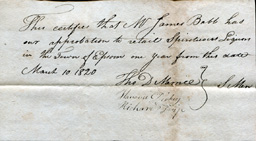 This certifies that Mr James Babb has
our approbation to retail Spirituous Liquors
in the Town of Epsom one year from this date
March 10 1820
Tho D Merrill
S. Men
Richard